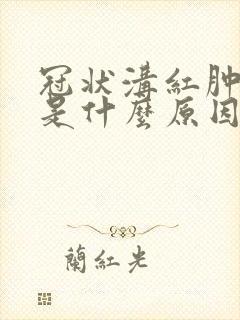 冠状溝紅肿
是什麼原因
蘭紅光